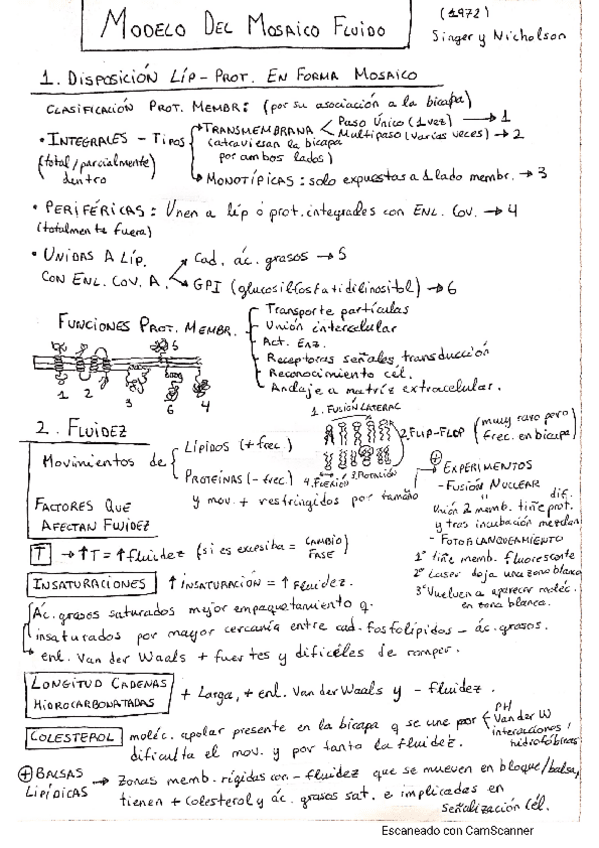 MODELO DEL MOSAICO FLUIDO
(1972)
Singer y Nicholson
1. DISPOSICIÓN LÍP-PROT. EN FORMA MOSAICO
CLASIFICACIÓN PROT. MEMBR: (por su asociación a la bicapa)
• INTEGRALES - Tipos
(total/parcialmente) dentro
TRANSMEMBRANA
(atraviesan la bicapa por ambos lados)
Paso Único (1 vez) → 1
Multipaso (varias veces) → 2
MONOTÍPICAS: solo expuestas a 1 lado membr. → 3
• PERIFÉRICAS: Unen a líp ó prot. integrales con ENL. COV. → 4
(totalmente fuera)
• UNIDAS A LÍP. CON ENL. COV. A.
Cad. ác. grasos → 5
GPI (glucosilfosfatidilinositol) → 6
FUNCIONES PROT. MEMBR.
Transporte partículas
Unión intercelular
Act. Enz.
Receptoras señales, transducción
Reconocimiento cél.
Andaje a matriz extracelular.
1 2 3 6 4 5
2. FLUIDEZ
Movimientos de
Lípidos (+ frec.)
Proteínas (- frec.)
y mov. + restringidos por tamaño
1. FUSIÓN LATERAL
2. FLIP-FLOP (muy raro pero frec. en bicapa)
3. ROTACIÓN
4. FLEXIÓN
⊕ EXPERIMENTOS
- FUSIÓN NUCLEAR
Unión 2 memb. tiñe prot. dif.
y tras incubación mezclan
- FOTOBLANQUEAMIENTO
1º tiñe memb. fluorescente
2º Laser deja una zona blanca
3º Vuelven a aparecer moléc. en zona blanca.
FACTORES QUE AFECTAN FLUIDEZ
T → ↑T = ↑fluidez (si es excesiba = CAMBIO FASE)
INSATURACIONES ↑ INSATURACIÓN = ↑ FLUIDEZ.
Ác. grasos saturados mejor empaquetamiento q.
insaturados por mayor cercanía entre cad. fosfolípidos - ác. grasos.
enl. Van der Waals + fuertes y difíciles de romper.
LONGITUD CADENAS HIDROCARBONATADAS
+ Larga, + enl. Van der Waals y - fluidez.
COLESTEROL moléc. apolar presente en la bicapa q se une por
PH
Van der W
interacciones hidrofóbicas
dificulta el mov. y por tanto la fluidez.
⊕ BALSAS LIPÍDICAS → Zonas memb. rígidas con - fluidez que se mueven en bloque/balsa,
tienen + colesterol y ác. grasos sat. e implicadas en
señalización cél.
Escaneado con CamScanner